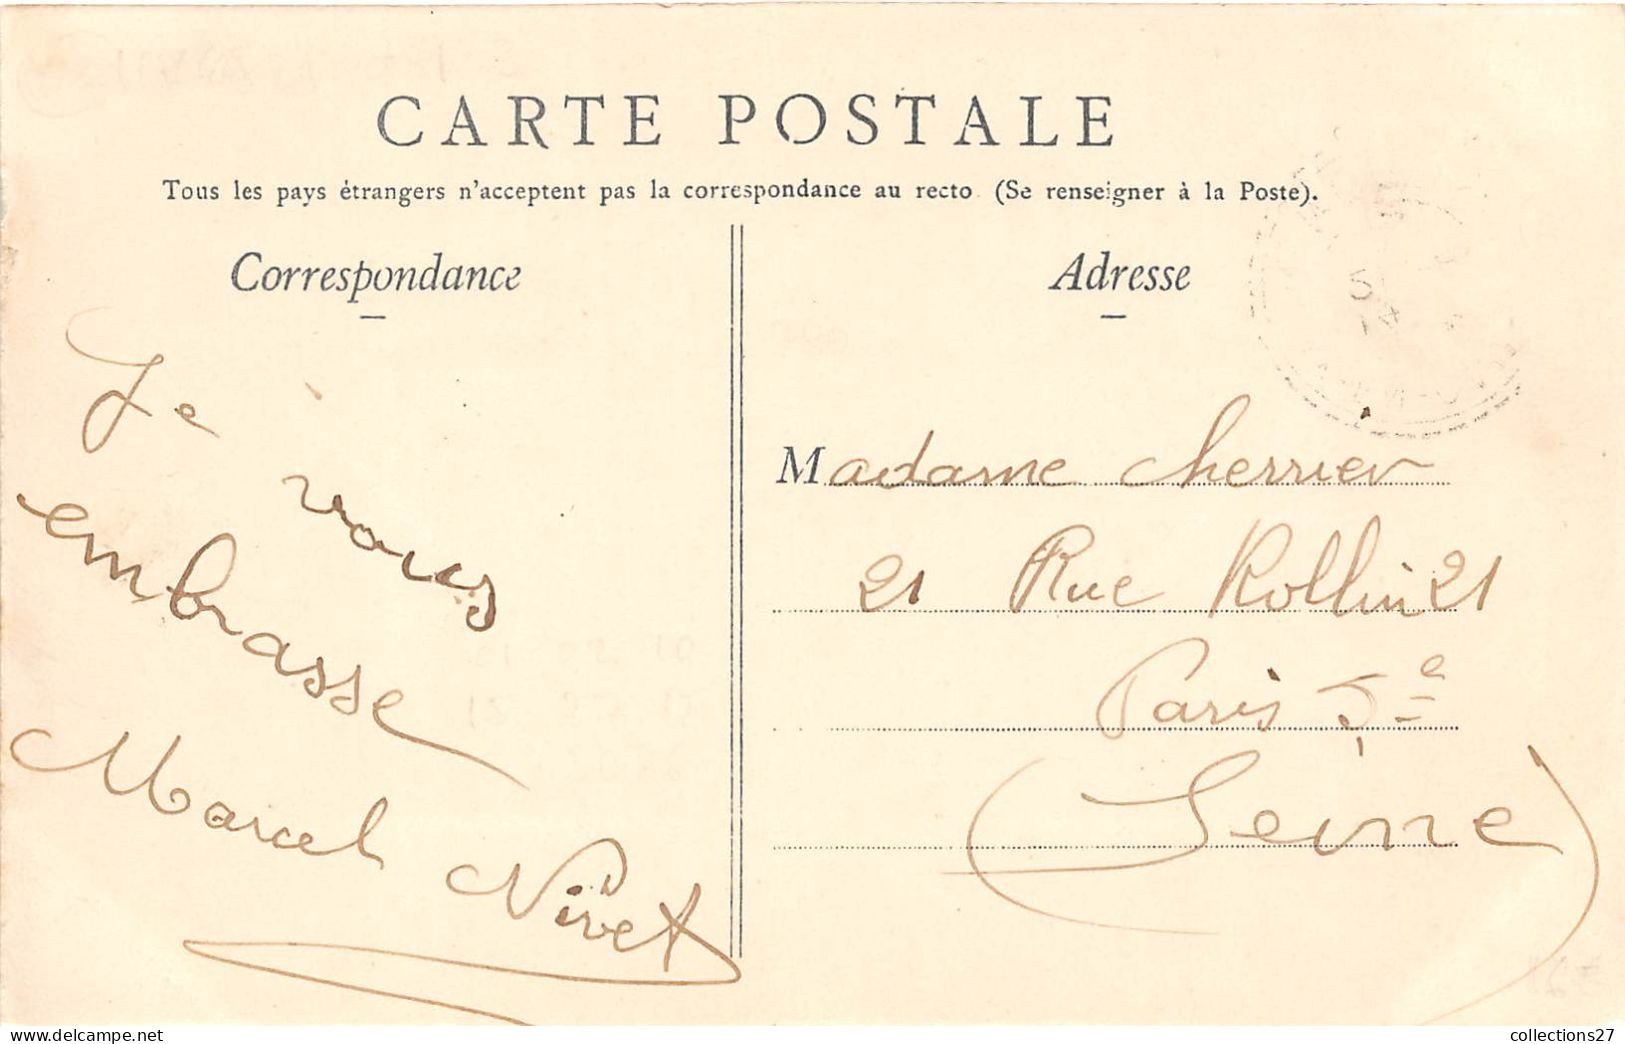 CARTE POSTALE
Tous les pays étrangers n'acceptent pas la correspondance au recto (Se renseigner à la Poste).
Correspondance
Adresse
Je
vous
embrasse
Marcel Nivet
Madame Cherrier
21 Rue Rollin 21
Paris 5e
(Seine)
collections27